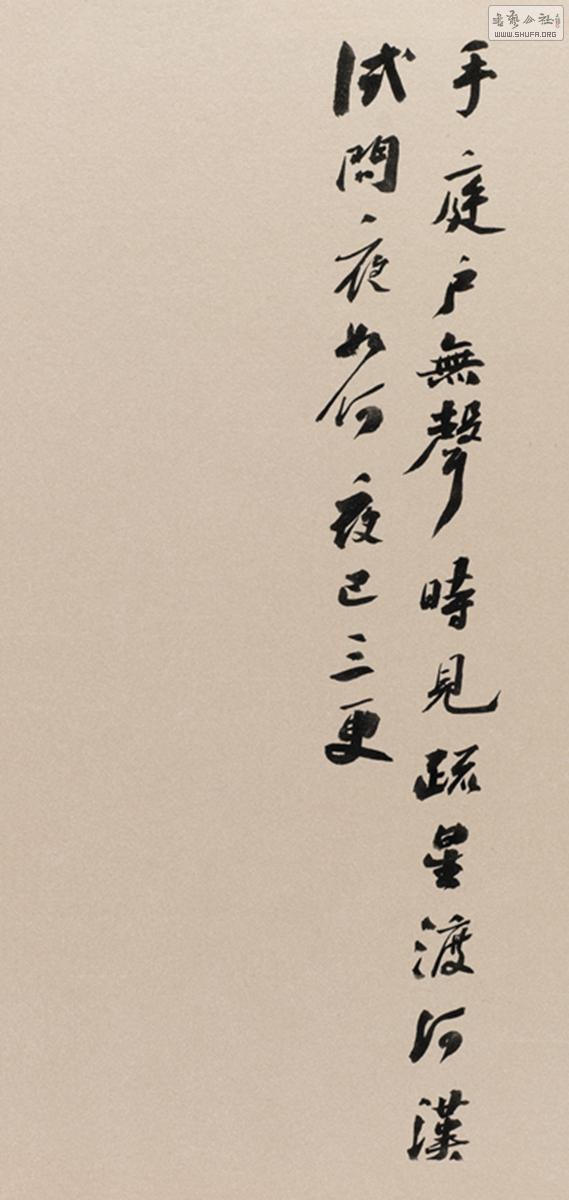 手庭户無聲時見疏星渡河漢
試問夜如何夜已三更
書藝公社
WWW.SHUFA.ORG